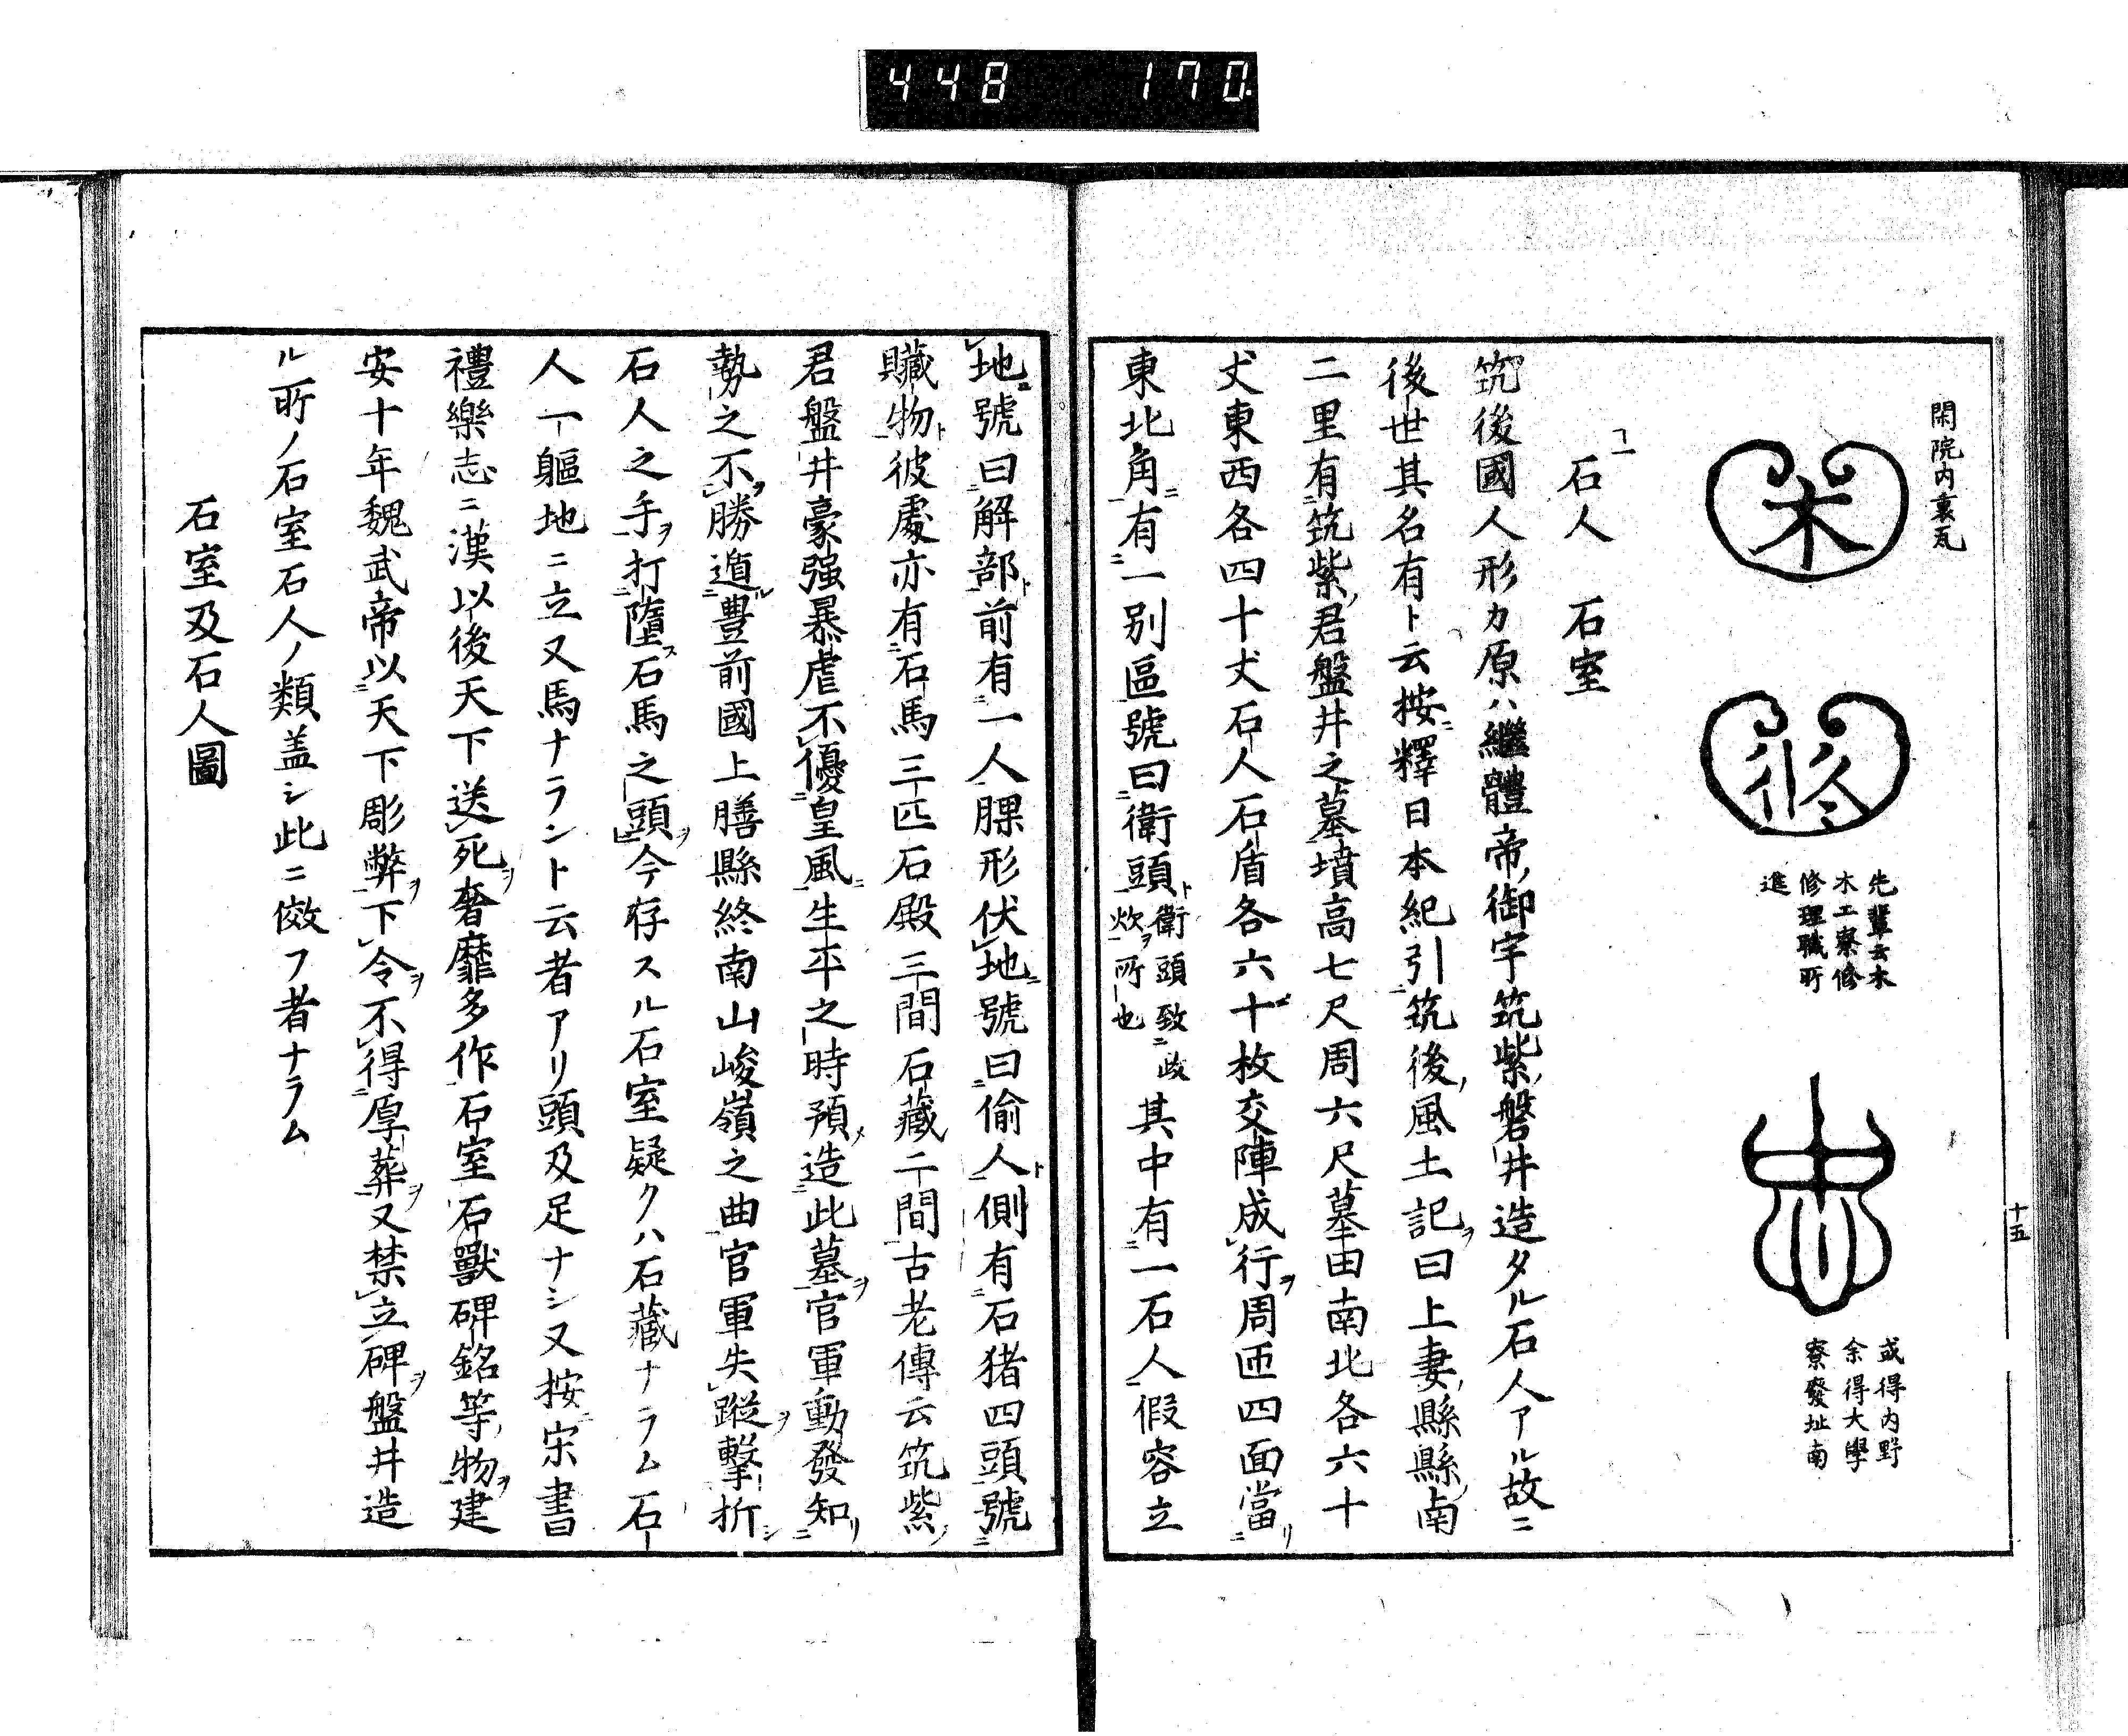 448 170
閑院内裏瓦
木
修
先輩云木
木工寮修
修理職所
進
或得内野
余得大學
寮廢址南
十五
石人 石室
筑後國人形カ原ハ繼體帝ノ御宇筑紫ノ磐井造タル石人アル故ニ
後世其名有ト云按釋日本紀引筑後ノ風土記曰上妻ノ縣縣ノ南
二里有筑紫ノ君盤井之墓墳高七尺周六尺墓田南北各六十
丈東西各四十丈石人石盾各六十枚交陣成行周匝四面當
東北角有一別區號曰衛頭
衛頭致政
炊所也
其中有一石人假容立
地號曰解部前有一人腂形伏地號曰偷人側有石猪四頭號
贜物彼處亦有石馬三匹石殿三間石藏二間古老傳云筑紫
君盤井豪强暴虐不優皇風生平之時預造此墓官軍動發知
勢之不勝遁豊前國上膳縣終南山峻嶺之曲官軍失蹤擊折
石人之手打墮石馬之頭今存スル石室疑クハ石藏ナラム石
人一軀地ニ立又馬ナラント云者アリ頭及足ナシ又按宋書
禮樂志ニ漢以後天下送死奢靡多作石室石獸碑銘等ノ物建
安十年魏武帝以天下彫弊下令不得厚葬又禁立碑盤井造
ル所ノ石室石人ノ類盖シ此ニ倣フ者ナラム
石室及石人圖